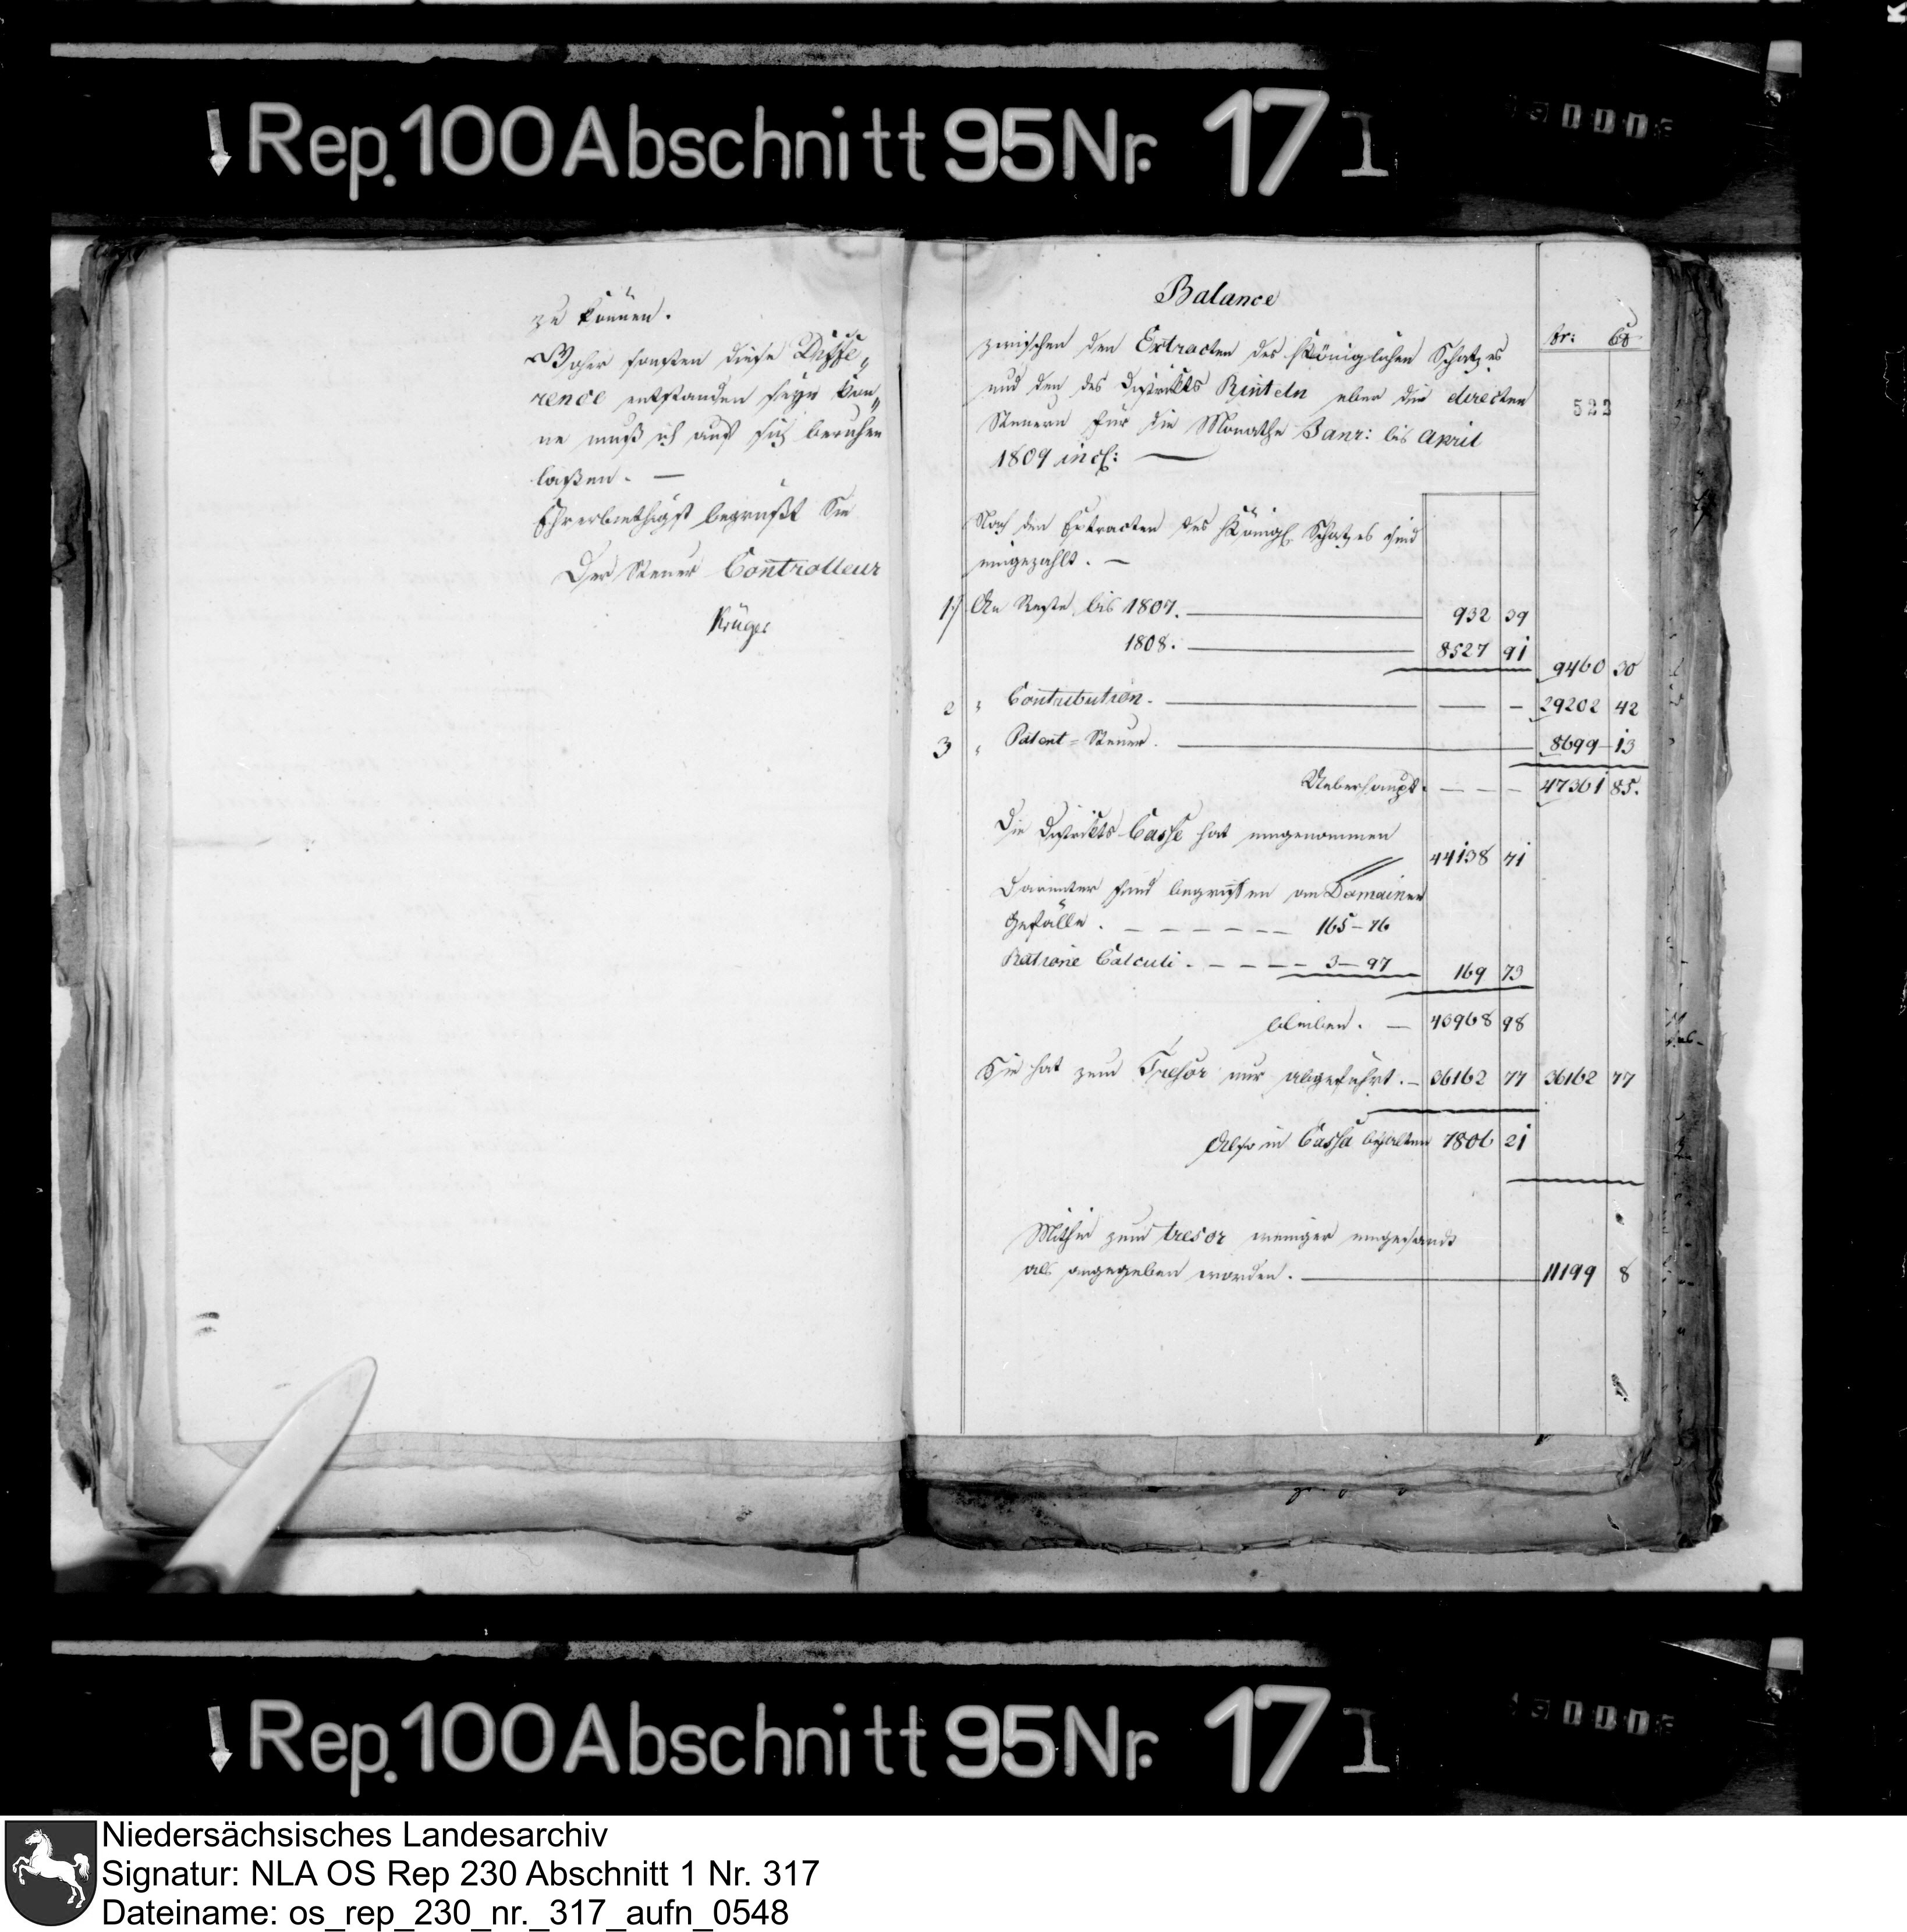 Rep. 100 Abschnitt 95 Nr. 171
zu können.
Woher sonsten diese Diffe„
rence entstanden seyn kön„
ne muß ich auf sich beruhen
laßen. —
Ehrerbiethigst begrüßt Sie
Der Steuer Controlleur
Krüger
Balance
zwischen den Extracten des Königlichen Schatzes
und den des Districkts Rinteln ueber die directen
Steuern für die Monathe Janr: bis April
1809 incl: —
fr: Cs
522
Nach den Extracten des Königl. Schatzes sind
eingezahlt. —
1) An Reste bis 1807. — 932 39
1808. — 8527 91 9460 30
2 " Contribution. — — – 29202 42
3 " Patent = Steuer. — 8699 – 13
Ueberhaupt. – – – 47361 85.
Die Districkts Casse hat eingenommen
44138 71
Darunter sind begriffen an Domainen
Gefälle. – – – – – – 165 – 76
Ratione Calculi. – – – – 3 – 97 169 73
bleiben. — 43968 98
Sie hat zum Tresor nur abgeführt. – 36162 77 36162 77
Also in Cassa behalten 7806 21
Mithin zum tresor weniger eingesandt
als angegeben worden. — 11199 8
Rep. 100 Abschnitt 95 Nr. 171
Niedersächsisches Landesarchiv
Signatur: NLA OS Rep 230 Abschnitt 1 Nr. 317
Dateiname: os_rep_230_nr._317_aufn_0548